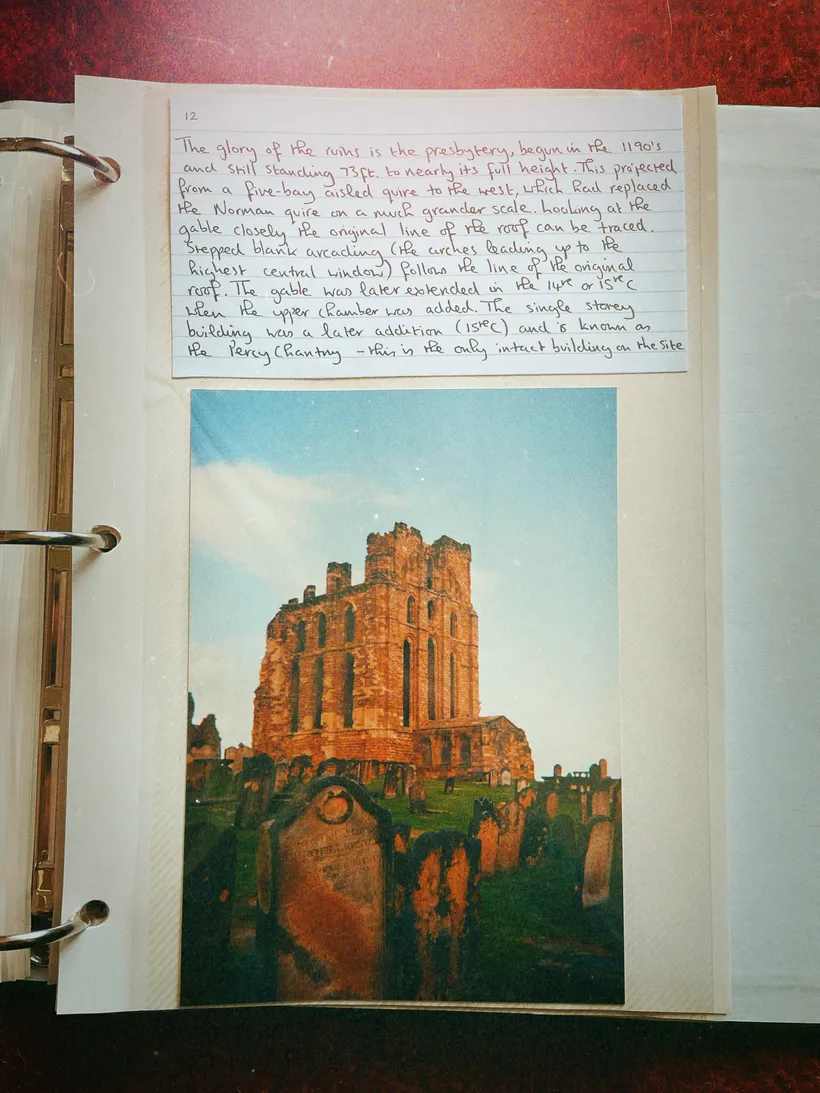 12
The glory of the ruins is the presbytery, begun in the 1190's
and still standing 73ft. to nearly its full height. This projected
from a five-bay aisled quire to the west, which had replaced
the Norman quire on a much grander scale. Looking at the
gable closely the original line of the roof can be traced.
Stepped blank arcading (the arches leading up to the
highest central window) follows the line of the original
roof. The gable was later extended in the 14th or 15thC
when the upper chamber was added. The single storey
building was a later addition (15thC) and is known as
the Percy Chantry - this is the only intact building on the site